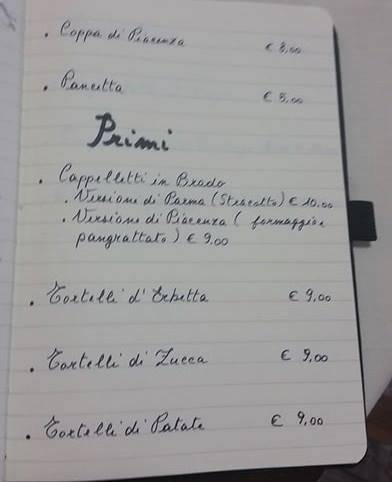 • Coppa di Piacenza € 8,00
• Pancetta € 8,00
Primi
• Cappelletti in Brodo
• Versione di Parma (Stracotto) € 10,00
• Versione di Piacenza (formaggio e
pangrattato) € 9,00
• Tortelli d'Erbetta € 9,00
• Tortelli di Zucca € 9,00
• Tortelli di Patate € 9,00